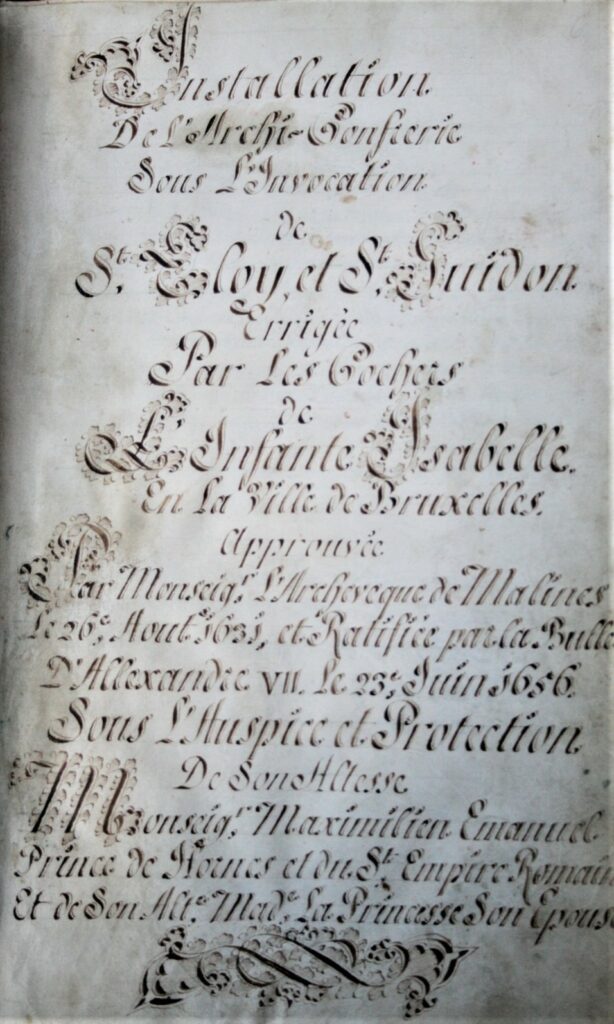 Installation
De L'Archi-Confrerie
Sous L'Invocation
de
St. Eloy, et St. Guidon
Errigée
Par Les Cochers
de
L'Infante Isabelle.
En La Ville de Bruxelles.
Approuvée
Par Monseigr. L'Archeveque de Malines
Le 26e. Aout 1631, et Ratifiée par la Bulle
D'Allexandre VII. Le 23e. Juin 1656.
Sous L'Auspice et Protection
De Son Altesse
Monseigr. Maximilien Emanuel
Prince de Hornes et du St. Empire Romain
Et de Son Alte. Made. La Princesse Son Epouse